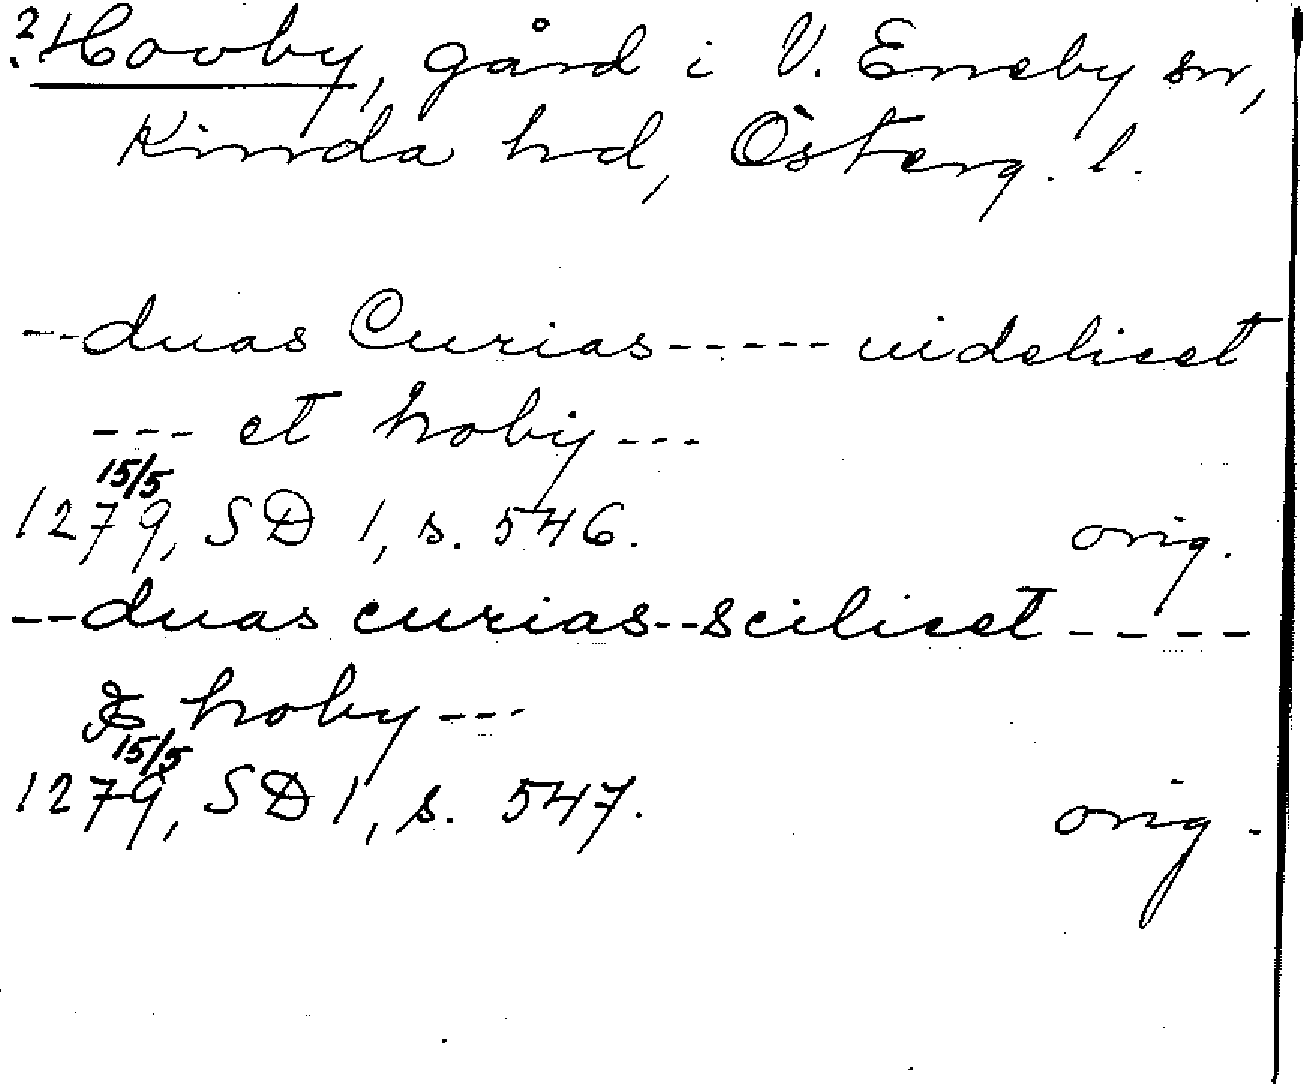 ? Hovby, gård i V. Eneby sn,
Kinda hd, Österg. l.
--duas Curias----- uideliset
--- et hobij---
15/5
1279, SD 1, s. 546. orig.
--duas curias--sciliset----
& hoby---
15/5
1279, SD 1, s. 547. orig.